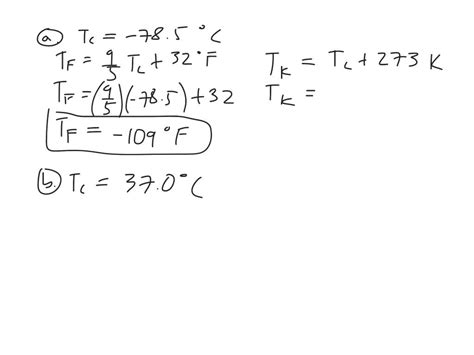 (a) Tc = -78.5 °C
TF = 9/5 Tc + 32 °F
TF = (9/5)(-78.5) + 32
TF = -109 °F
TK = Tc + 273 K
TK =
(b.) Tc = 37.0 °C